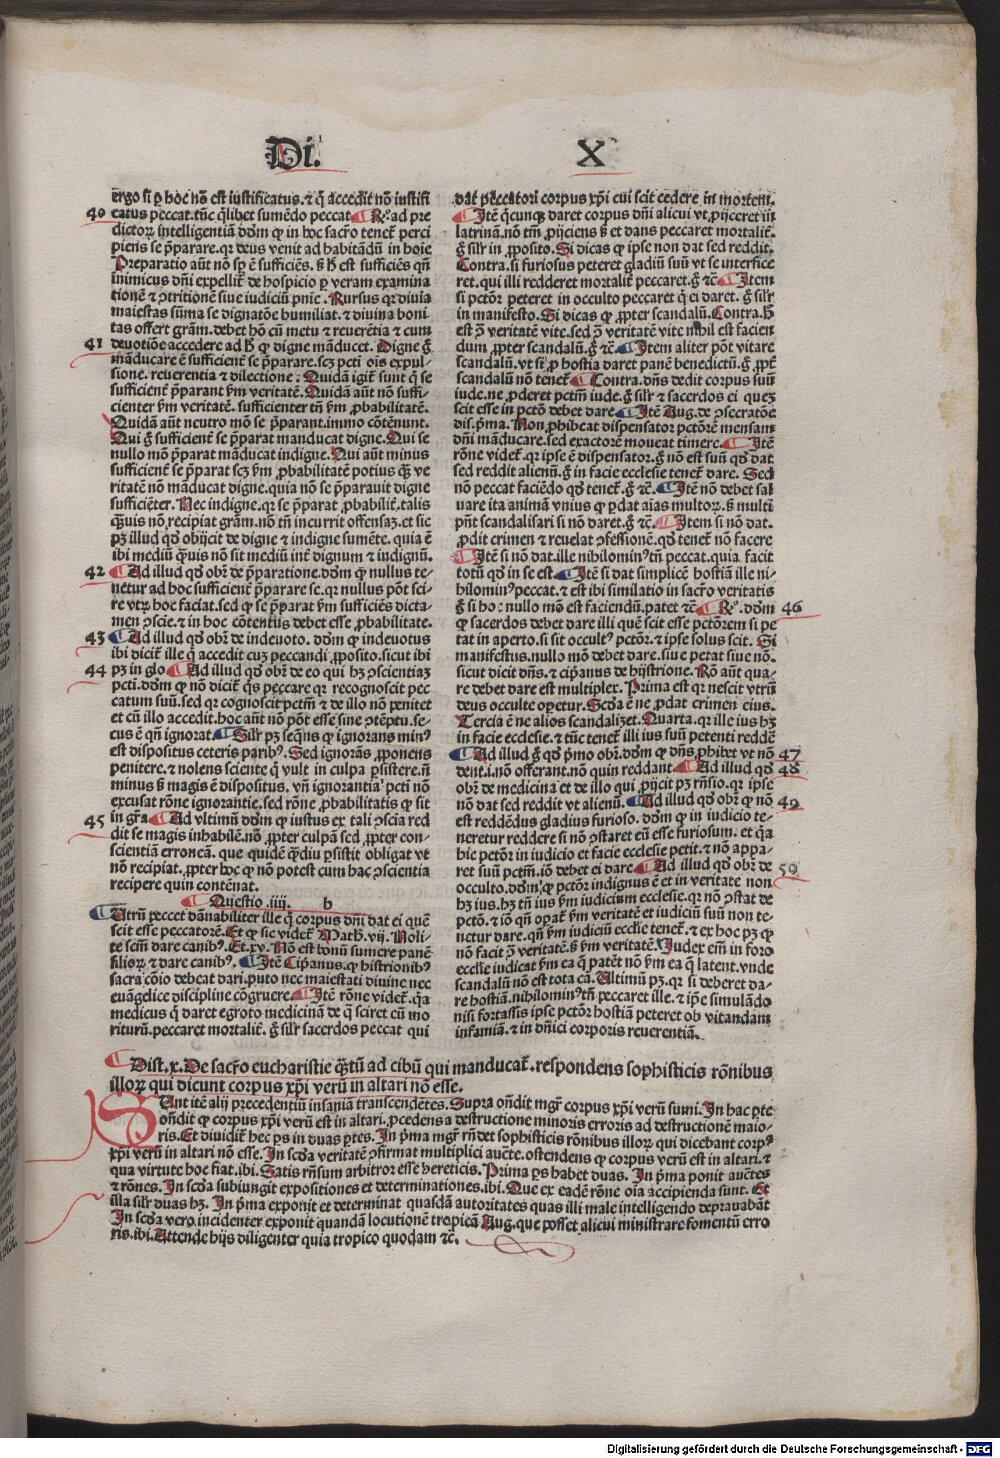 Di. X
ergo si ꝑ hoc nō est iustificatus. ⁊ q̇ accedit nō iustifi
40 catus peccat. tūc q̇libet sumēdo peccat Rͦ. ad pre
dictorꝫ intelligentiā dd̄m ꝙ in hoc sacr̄o tenet̄ perci
piens se p̄parare. qr deus venit ad habitādū in hoīe
Preparatio aūt nō sp̄ ē sufficiēs. sꝫ hꝭ est sufficiēs qn̄
inimicus dn̄i expellit̄ de hospicio ꝑ veram examina
tionē ⁊ ɔtritionē siue iudiciū pn̄ie. Rursus qr diuīa
maiestas sūma se dignatōe humiliat. ⁊ diuina boni
tas offert grām. debet hō cū metu ⁊ reuerētia ⁊ cum
41 deuotiōe accedere ad hꝭ ꝙ digne māducet. Digne ḡ
māducare ē sufficienter se p̄parare. scꝫ pcti oīs expul-
sione. reuerentia ⁊ dilectione. Quidā igit̄ sunt q̇ se
sufficient̄ p̄parant ẜm veritatē. Quidā aūt nō suffi-
cienter ẜm veritatē. sufficienter tn̄ ẜm ꝓbabilitatē.
Quidā aūt neutro mō se p̄parant. immo cōtēnunt.
Qui ḡ sufficient̄ se p̄parat manducat digne. Qui se
nullo mō p̄parat māducat indigne. Qui aūt minus
sufficient̄ se p̄parat scꝫ ẜm ꝓbabilitatē potius qꝫ ve
ritatē nō māducat digne. quia nō se p̄parauit digne
sufficiēter. Nec indigne. qr se p̄parat ꝓbabilit̄. talis
qꝫuis nō recipiat grām. nō tn̄ incurrit offensaꝫ. et sic
pꝫ illud qď obijcit̄ de digne ⁊ indigne sumēte. quia ē
ibi mediū qꝫuis nō sit mediū int̄ dignum ⁊ indignū.
42 Ad illud qď obr̄ de p̄paratione. dd̄m ꝙ nullus te-
netur ad hoc sufficient̄ p̄parare se. qr nullus pōt sci-
re vtꝝ hoc faciat. sed ꝙ se p̄parat ẜm sufficiēs dicta-
men ɔscie. ⁊ in hoc cōtentus debet esse ꝓbabilitate.
43 Ad illud qď obr̄ de indeuoto. dd̄m ꝙ indeuotus
ibi dicit̄ ille q̇ accedit cuꝫ peccandi ꝓposito. sicut ibi
44 pꝫ in glo Ad illud qď obr̄ de eo qui hꝫ ɔscientiaꝫ
pcti. dd̄m ꝙ nō dicit̄ q̇s peccare qr recognoscit pec
catum suū. sed qr cognoscit pctm̄ ⁊ de illo nō penitet
et cū illo accedit. hoc aūt nō pōt esse sine ɔtēptu. se-
cus ē qn̄ ignorat. Silr̄ pꝫ seq̄ns ꝙ ignorans minꝰ
est dispositus ceteris paribꝰ. Sed ignorās ꝓponens
penitere. ⁊ nolens sciente q̇ vult in culpa ꝑsistere. n̄
minus sꝫ magis ē dispositus. vn̄ ignorantia pcti nō
excusat rōne ignorantie. sed rōne ꝓbabilitatis ꝙ sit
45 in gr̄a Ad vltimū dd̄m ꝙ iustus ex tali ɔscia red
dit se magis inhabilē. nō ꝓpter culpā sed ꝓpter con-
scientiā erroneā. que quidē qꝫdiu ꝑsistit obligat vt
nō recipiat. ꝓpter hoc ꝙ nō potest cum hac ɔscientia
recipere quin contēnat.
Questio .iiij. b
Utrū peccet dānabiliter ille q̇ corpus dn̄i dat ei quē
scit esse peccatorē. Et ꝙ sic videt̄ Math. vij. Noli-
te scm̄ dare canibꝰ. Et. xv. Nō est bonū sumere panē
filiorꝫ ⁊ dare canibꝰ. Itē Cip̄anus. ꝙ histrionibꝰ
sacra cōio debeat dari. puto nec maiestati diuine nec
euāgelice discipline cōgruere. Itē rōne videt̄. qa
medicus q̇ daret egroto medicinā de q̄ sciret cū mo
riturū. peccaret mortalit̄. ḡ silr̄ sacerdos peccat qui
dat peccatori corpus xp̄i cui scit cedere in mortem.
Itē q̇cunqꝫ daret corpus dn̄i alicui vt ꝓijceret in
latrinā. nō tm̄ ꝓijciens sꝫ et dans peccaret mortalit̄.
ḡ silr̄ in ꝓposito. Si dicas ꝙ ipse non dat sed reddit.
Contra. si furiosus peteret gladiū suū vt se interfice
ret. qui illi redderet mortalit̄ peccaret. ḡ ⁊c̄ Item
si pctōr peteret in occulto peccaret q̇ ei daret. ḡ silr̄
in manifesto. Si dicas ꝙ ꝓpter scandalū. Contra. hꝭ
est ꝓ veritate vite. sed ꝓ veritatē vite nihil est facien
dum ꝓpter scandalū. ḡ ⁊c̄ Item aliter pōt vitare
scandalū. vt si ꝓ hostia daret panē benedictū. ḡ ꝓpt̄
scandalū nō tenet̄ Contra. dn̄s dedit corpus suū
iude. ne ꝓderet pctm̄ iude. ḡ silr̄ ⁊ sacerdos ei queꝫ
scit esse in pctō debet dare Itē Aug. de ɔsecratōe
dis. p̄ma. Non ꝓhibeat dispensator pctōrē mensam
dn̄i māducare. sed exactorē moueat timere. Itē
rōne videt̄. qr ipse ē dispensator. ḡ nō est suū qď dat
sed reddit alienū. ḡ in facie ecclesie tenet̄ dare. Sed
nō peccat faciēdo qď tenet̄. ḡ ⁊c̄. Itē nō debet sal
uare ita animā vnius ꝙ ꝑdat aīas multoꝝ. sꝫ multi
pn̄t scandalisari si nō daret. ḡ ⁊c̄ Item si nō dat.
ꝓdit crimen ⁊ reuelat ɔfessionē. qď tenet̄ nō facere
Itē si nō dat. ille nihilominꝰ tn̄ peccat. quia facit
totū qď in se est. Itē si dat simplicē hostiā ille ni-
hilominꝰ peccat. ⁊ est ibi similatio in sacr̄o veritatis
46 ḡ si hoc nullo mō est faciendū. patet ⁊c̄ Rͦ. dd̄m
ꝙ sacerdos debet dare illi quē scit esse pctōrem si pe
tat in aperto. si sit occultꝰ pctōr. ⁊ ipse solus scit. Si
manifestus. nullo mō debet dare. siue petat siue nō.
sicut dicit dn̄s. ⁊ cip̄anus de histrione. Rō aūt qua-
re debet dare est multiplex. Prima est qr nescit vtrū
deus occulte oꝑetur. Scd̄a ē ne ꝓdat crimen eius.
Tercia ē ne alios scandaliꝫet. Quarta. qr ille ius hꝫ
in facie ecclesie. ⁊ tūc tenet̄ illi ius suū petenti reddē
47 Ad illud ḡ qď p̄mo obr̄. dd̄m ꝙ dn̄s ꝓhibet vt nō
48 dent. i. nō offerant. nō quin reddant. Ad illud qď
obr̄ de medicina et de illo qui ꝓijcit pꝫ rn̄sio. qr ipse
49 nō dat sed reddit vt alienū. Ad illud qď obr̄ ꝙ nō
est reddēdus gladius furioso. dd̄m ꝙ in iudicio te-
neretur reddere si nō ɔstaret eū esse furiosum. et q̄a
hic pctōr in iudicio et facie ecclesie petit. ⁊ nō appa-
50 ret suū pctm̄. iō debet ei dare. Ad illud qď obr̄ de
occulto. dd̄m ꝙ pctōr indignus ē et in veritate non
hꝫ ius. hꝫ tn̄ ius ẜm iudicium ecclesie. qr nō ɔstat de
pctō. ⁊ iō qn̄ oꝑat̄ ẜm veritatē et iudiciū suū non te-
netur dare. qn̄ ẜm iudiciū eccl̄ie tenet̄. ⁊ ex hoc pꝫ ꝙ
nō facit ɔ̄ veritatē. sꝫ ẜm veritatē. Iudex em̄ in foro
eccl̄ie iudicat ẜm ea q̄ patēt nō ẜm ea q̄ latent. vnde
scandalū nō est tota cā. Ultimū pꝫ. qr si deberet da-
re hostiā. nihilominꝰ tn̄ peccaret ille. ⁊ ip̄e simulādo
nisi fortassis ipse pctōr hostiā peteret ob vitandam
infamiā. ⁊ in dn̄ici corporis reuerentiā.
Dist. x. De sacr̄o eucharistie qꝫtū ad cibū qui manducat̄. respondens sophisticis rōnibus
illorꝫ qui dicunt corpus xp̄i verū in altari nō esse.
SUnt itē alij precedentiū insaniā transcendētes. Supra on̄dit mgr̄ corpus xp̄i verū sumi. In hac ꝑte
on̄dit ꝙ corpus xp̄i verū est in altari. ꝓcedens a destructione minoris erroris ad destructionē maio-
ris. Et diuidit̄ hec ꝑs in duas ꝑtes. In p̄ma mgr̄ rn̄det sophisticis rōnibus illorꝫ qui dicebant corpꝰ
xp̄i verū in altari nō esse. In scd̄a veritatē ɔfirmat multiplici auc̄te. ostendens ꝙ corpus verū est in altari. ⁊
qua virtute hoc fiat. ibi. Satis rn̄sum arbitror esse hereticis. Prima ꝑs habet duas. In p̄ma ponit auc̄tes
⁊ rōnes. In scd̄a subiungit expositiones et determinationes. ibi. Que ex eadē rōne oīa accipienda sunt. Et
illa silr̄ duas hꝫ. In p̄ma exponit et determinat quasdā autoritates quas illi male intelligendo deprauabāt
In scd̄a vero incidenter exponit quandā locutionē tropicā Aug. que posset alicui ministrare fomentū erro
ris. ibi. Attende hijs diligenter quia tropico quodam ⁊c̄.
Digitalisierung gefördert durch die Deutsche Forschungsgemeinschaft - DFG